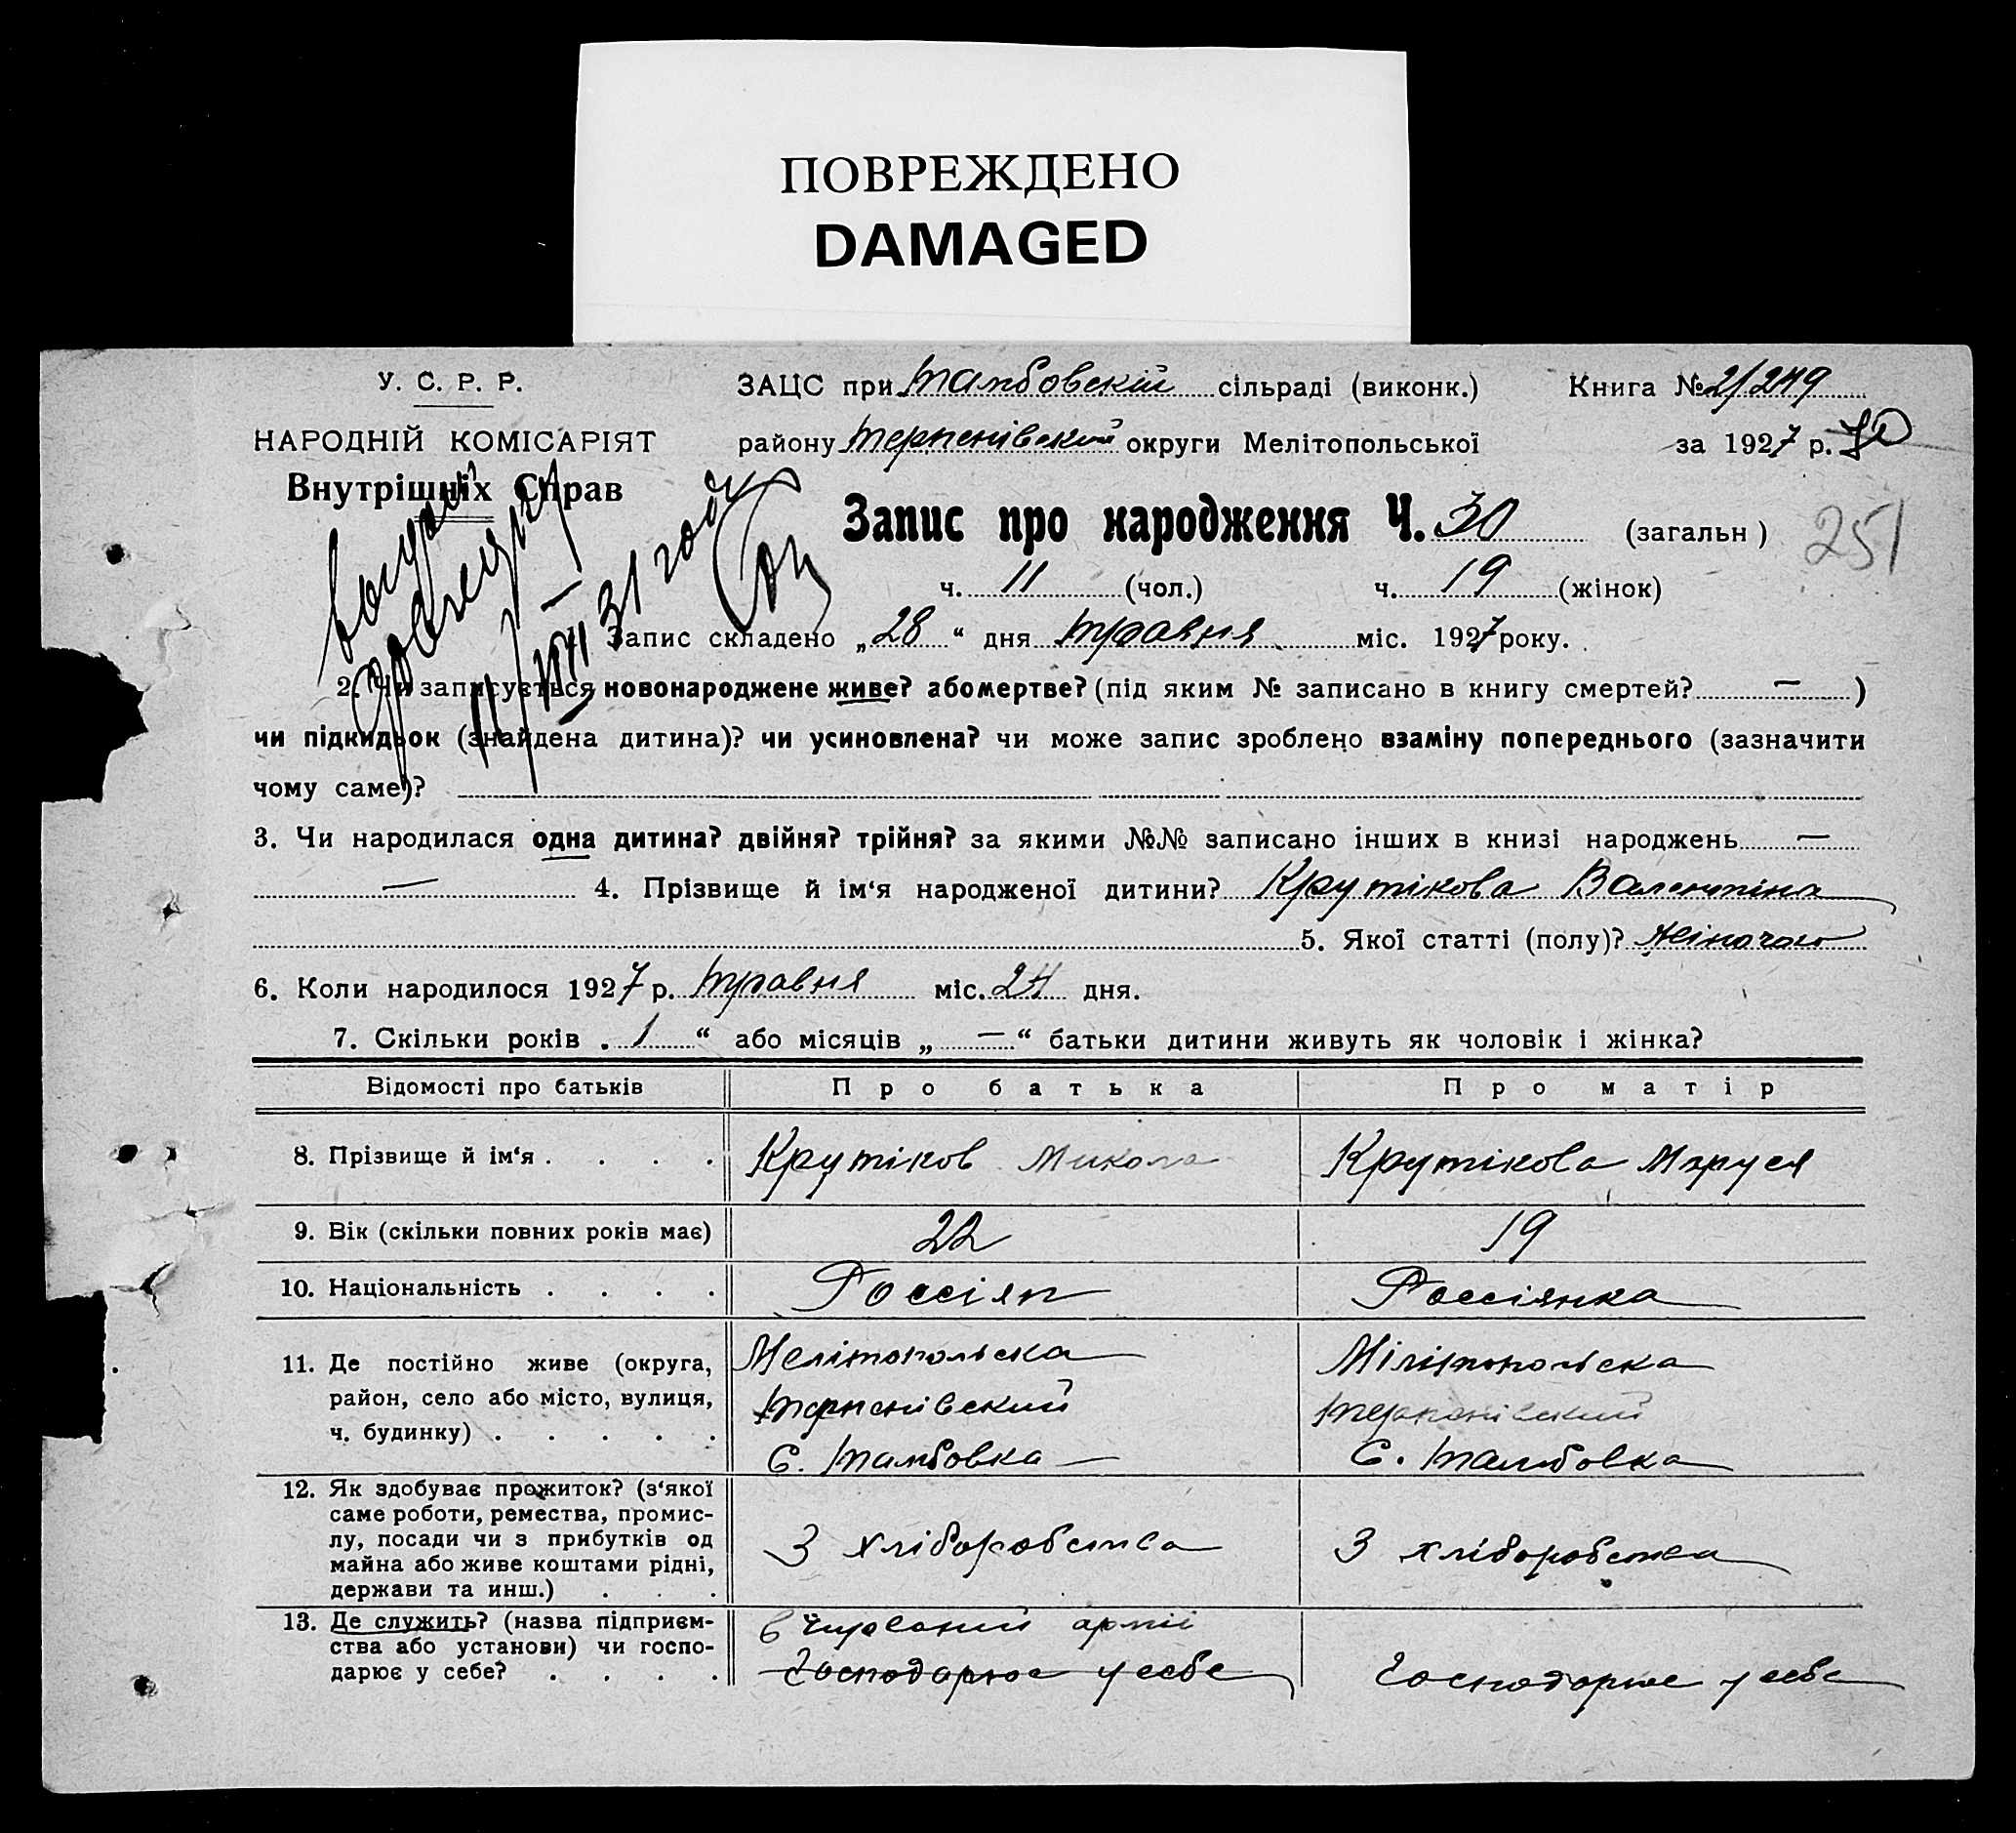 ПОВРЕЖДЕНО
DAMAGED
У. С. Р. Р.
НАРОДНІЙ КОМІСАРІЯТ
Внутрішніх Справ
ЗАЦС при Тамбовскій сільраді (виконк.) Книга № 2/249
району Терпенівский округи Мелітопольської за 1927 р.
251
Запис про народження Ч. 30 (загальн)
ч. 11 (чол.) ч. 19 (жінок)
31 году
Запис складено „28“ дня травня міс. 1927 року.
2. Чи записується новонароджене живе? або мертве? (під яким № записано в книгу смертей? — )
чи підкидьок (знайдена дитина)? чи усиновлена? чи може запис зроблено взаміну попереднього (зазначити
чому саме)?
3. Чи народилася одна дитина? двійня? трійня? за якими №№ записано інших в книзі народжень —
— 4. Прізвище й ім‘я народженої дитини? Крутікова Валентіна
5. Якої статті (полу)? Жіночою
6. Коли народилося 1927 р. травня міс. 24 дня.
7. Скільки років „ 1 “ або місяців „ — “ батьки дитини живуть як чоловік і жінка?
Відомості про батьків Про батька Про матір
8. Прізвище й ім‘я . . . . Крутіков Микола Крутікова Маруся
9. Вік (скільки повних років має) 22 19
10. Національність . . . . Россіян Россіянка
11. Де постійно живе (округа,
район, село або місто, вулиця,
ч. будинку) . . . . .
Мелітопольска
Терпенівский
С. Тамбовка
Мілітопольска
Терпенівский
С. Тамбовка
12. Як здобуває прожиток? (з‘якої
саме роботи, ремества, промис-
лу, посади чи з прибутків од
майна або живе коштами рідні,
держави та инш.) . . .
З хліборобства З хліборобства
13. Де служить? (назва підприєм-
ства або установи) чи госпо-
дарює у себе? . . . .
в Червоний армії
Господарює у себе
Господарює у себе